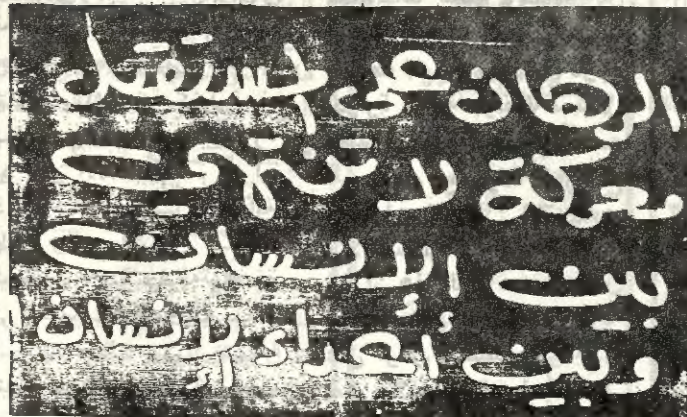 الرهان على المستقبل
معركة لا تنتهي
بين الإنسان
وبين أعداء الإنسان!